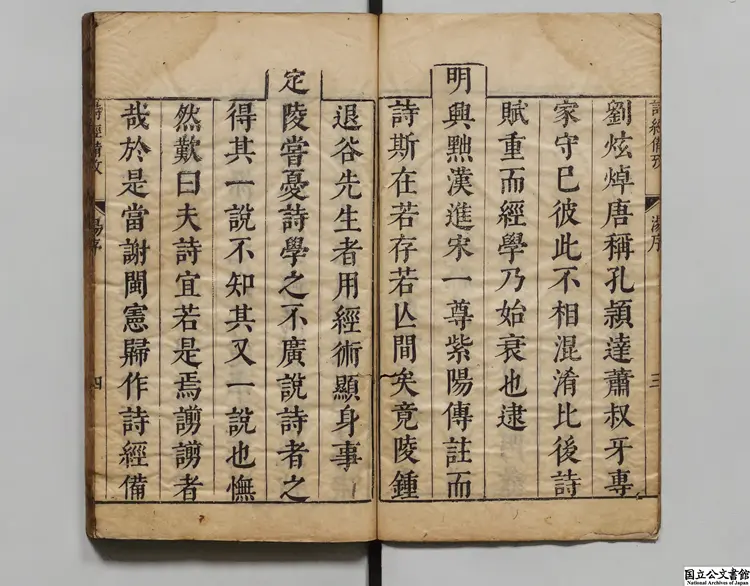 詩經備攷
湯序
三
劉炫焯唐稱孔頴達蕭叔牙專
家守已彼此不相混淆比後詩
賦重而經學乃始衰也逮
明興黜漢進宋一尊紫陽傳註而
詩斯在若存若亾間矣竟陵鍾
退谷先生者用經術顯身事
定陵嘗憂詩學之不廣說詩者之
得其一說不知其又一說也憮
然歎曰夫詩宜若是焉謭謭者
哉於是當謝閩憲歸作詩經備
詩經備攷
湯序
四
国立公文書館
National Archives of Japan